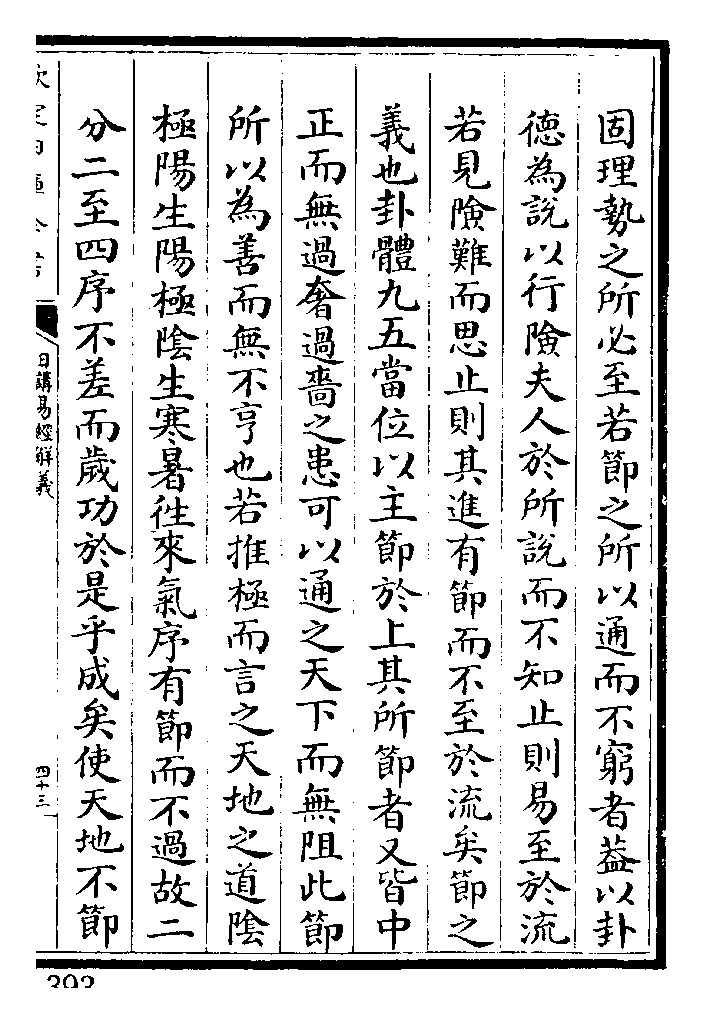 固理勢之所必至若節之所以通而不窮者葢以卦
德為說以行險夫人於所說而不知止則易至於流
若見險難而思止則其進有節而不至於流矣節之
義也卦體九五當位以主節於上其所節者又皆中
正而無過奢過嗇之患可以通之天下而無阻此節
所以為善而無不亨也若推極而言之天地之道隂
極陽生陽極隂生寒暑徃來氣序有節而不過故二
分二至四序不差而歲功於是乎成矣使天地不節
日講易經解義
四十三
393